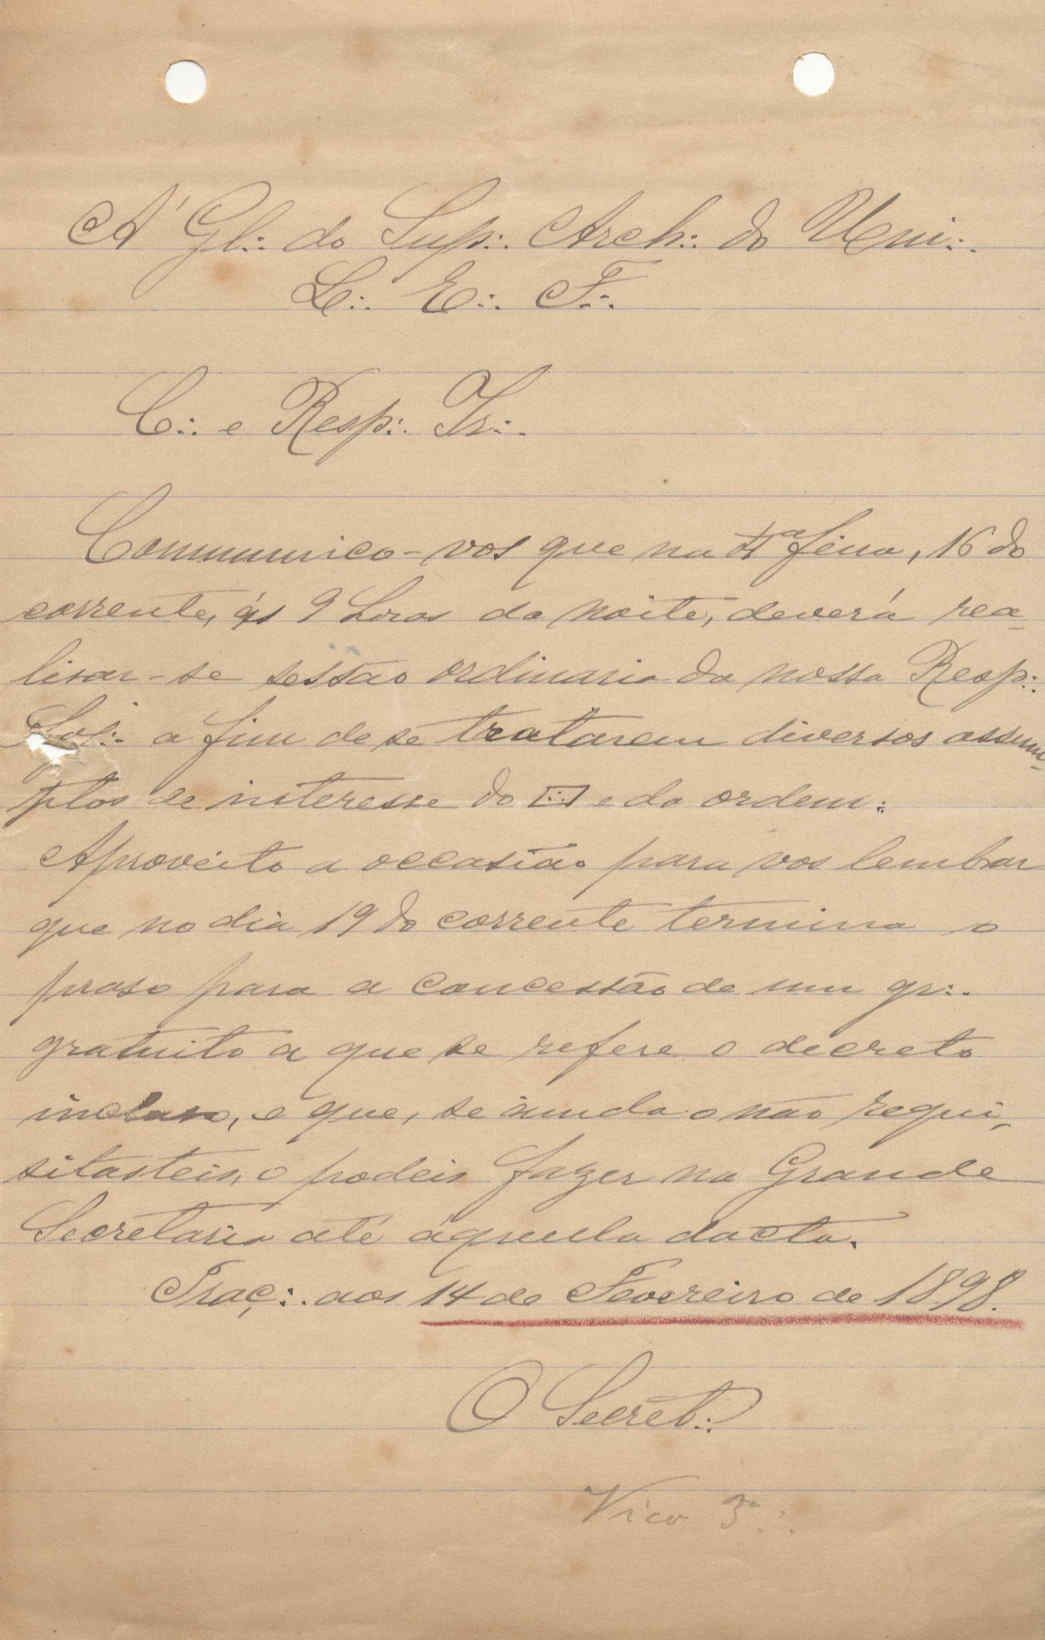 Á Gl∴ do Sup∴ Arch∴ do Uni∴
L∴ E∴ F∴
C∴ e Resp∴ Ir∴
Communico-vos que na 4ª feira, 16 do
corrente, ás 9 horas da noite, deverá rea-
lisar-se sessão ordinaria da nossa Resp∴
a fim de se tratarem diversos assum-
ptos de interesse do e da ordem∴
Aproveito a occasião para vos lembrar
que no dia 19 do corrente termina o
praso para a concessão de um gr∴
gratuito a que se refere o decreto
incluso, e que, se ainda o não requi-
sitasteis, o podeis fazer na Grande
Secretaria até áquella dacta.
Traç∴ aos 14 de Fevereiro de 1898.
O Secret∴
Vico 3∴